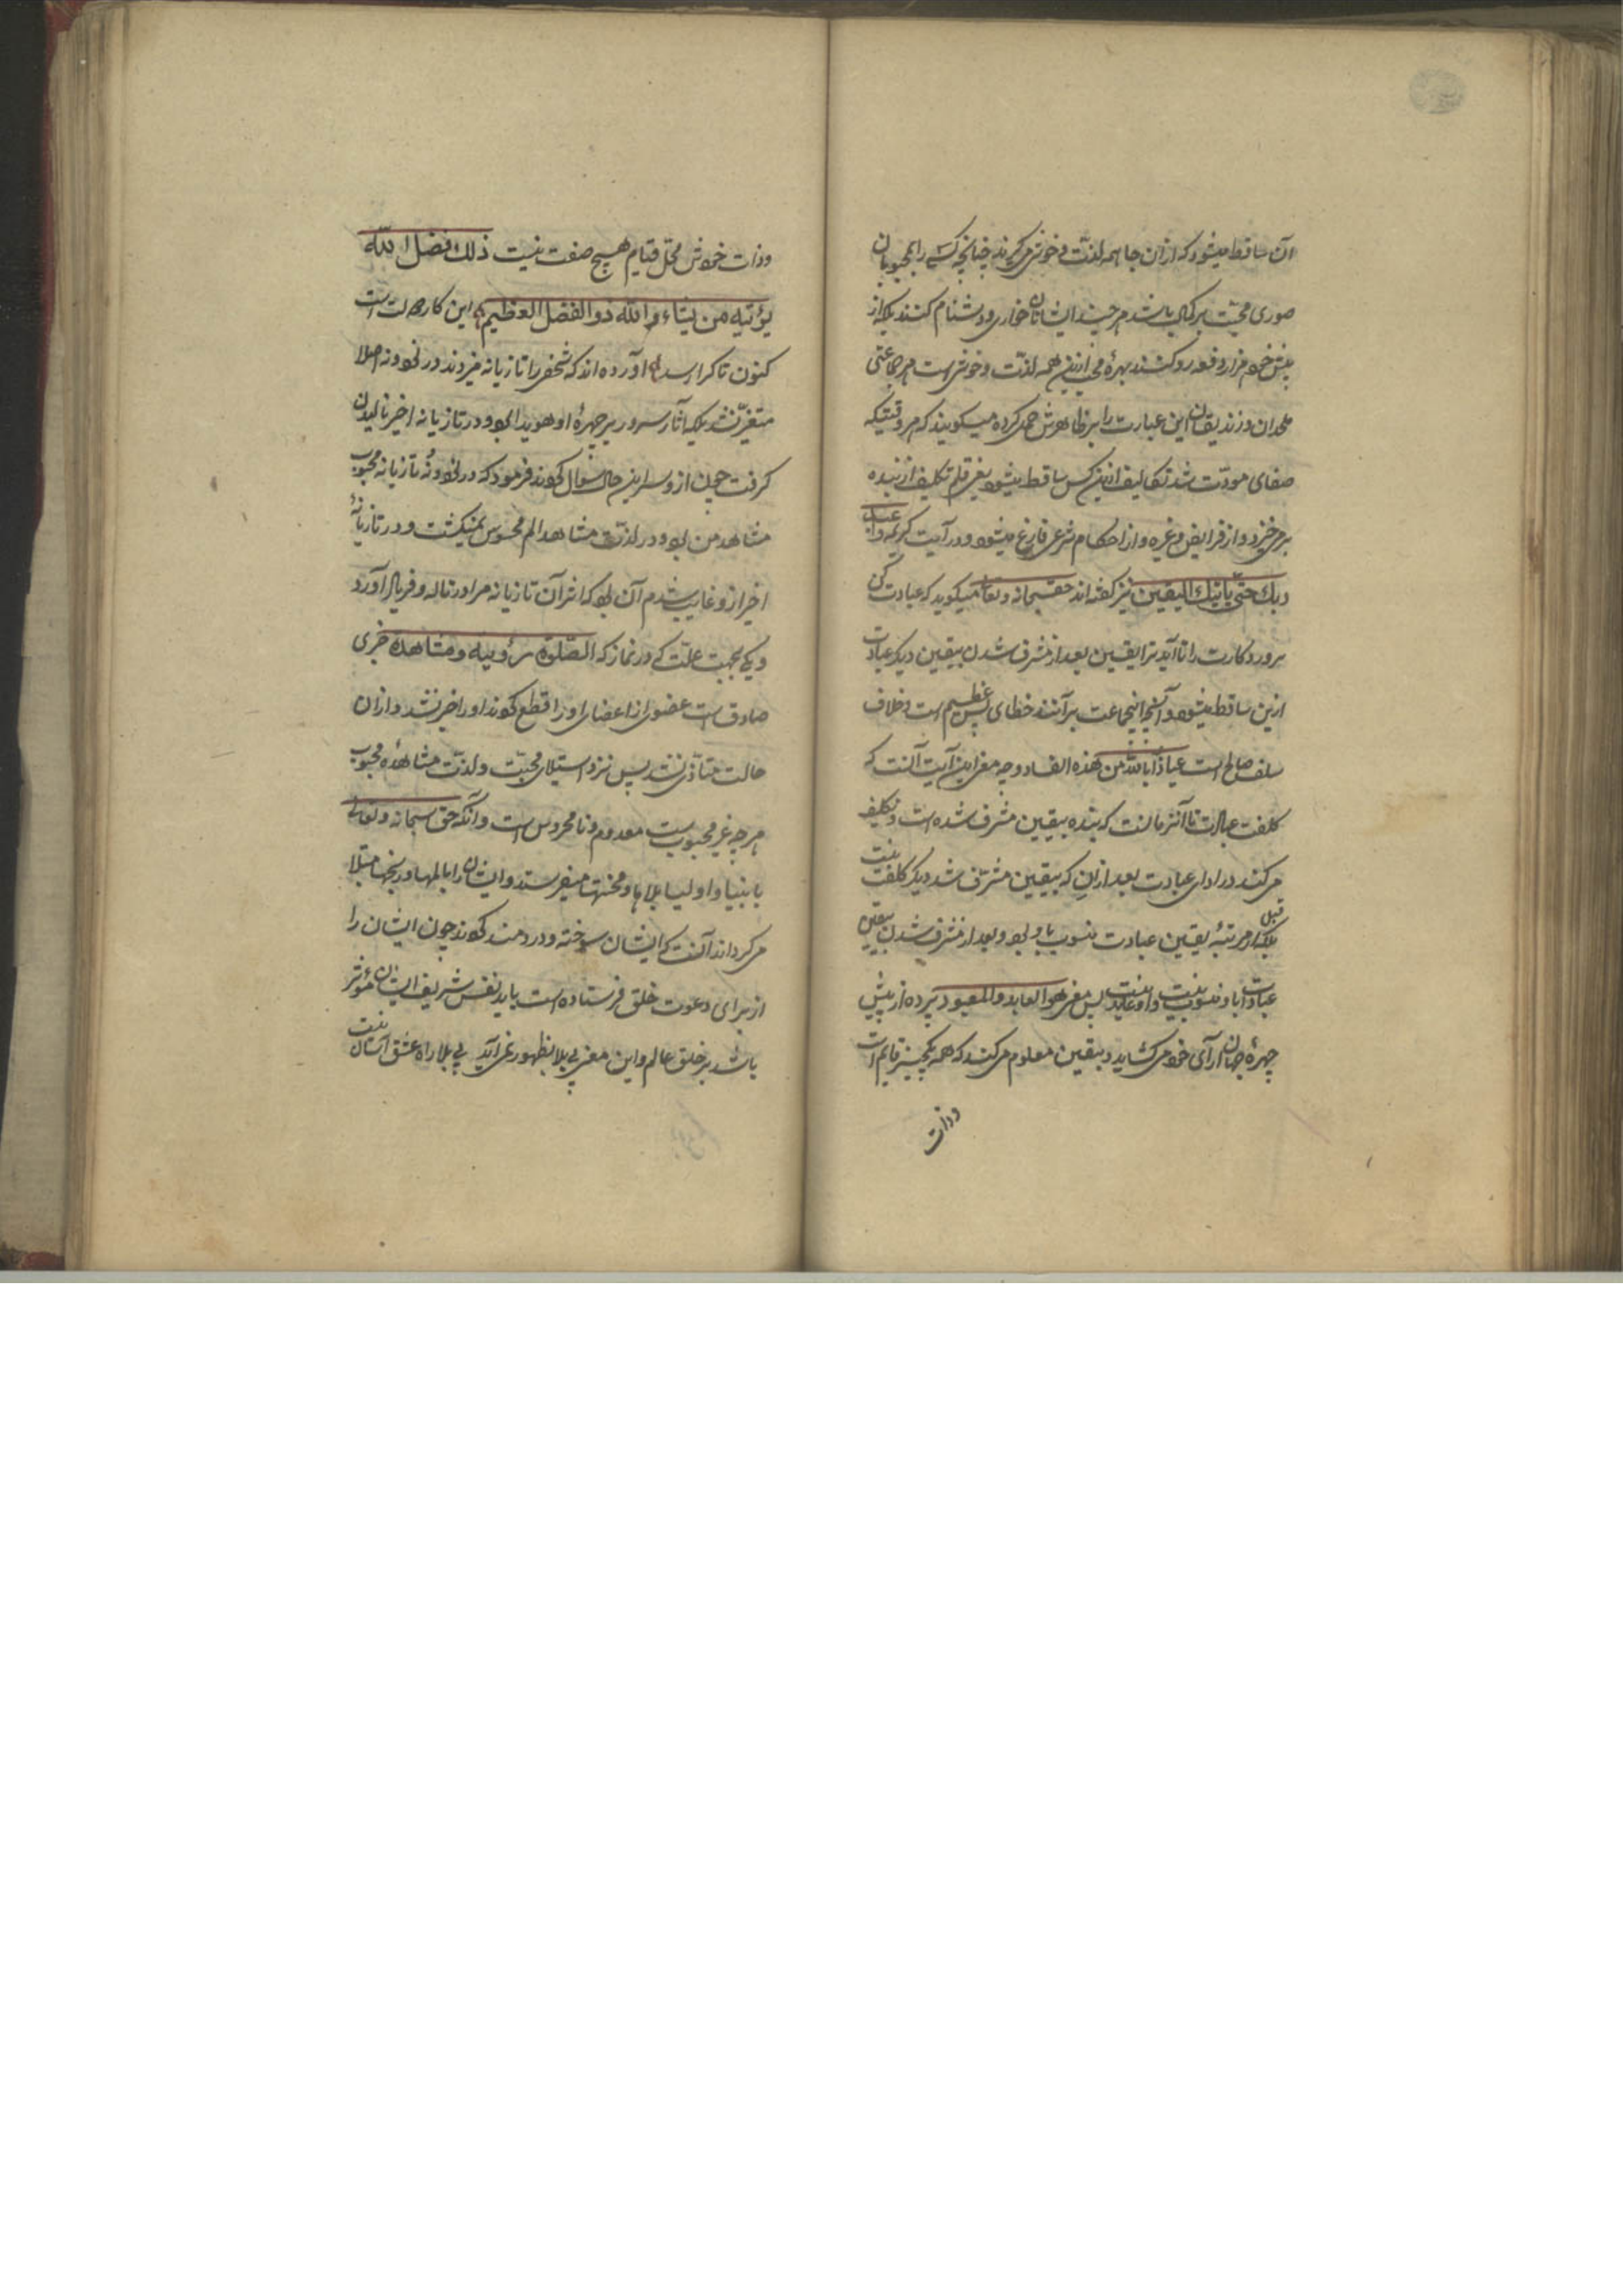 آن ساقط میشود که ازان جا همه لذّت و خوشی میگیرند چنانچه کسے را بمحبوبان
صوری محبّت بر کمال باشد هر چند ایشانان خواری و دشنام کنند بلکه از
پیش خود هزار دفعه رو کشند بهرهٔ محب ازین همه لذّت و خوشی است هر جماعتی
ملحدان و زندیقان این عبارت را بر ظاهرش حمل کرده میگویند که هر وقتیکه
صفای مودّت شد تکالیف ازین کس ساقط میشود یعنی قلم تکلیف از بنده
بر میخیزد و از فرایض و غیره و از احکام شرعی فارغ میشود و در آیت کریمه واعبد
ربك حتّى یأتیك الیقین نیز گفته اند حق سبحانه و تعالی میگوید که عبادت کن
پروردگارت را تا آید ترا یقین بعد از مشرف شدن بیقین دیگر عبادت
ازین ساقط میشود و آنچه اینجماعت برآنند خطای بس عظیم است و خلاف
سلف صالح است عیاذًا بالله من هذه الفساد وجه معنی این آیت آنست که
کلفت عبادت تا آنزمانست که بنده بیقین مشرف شده است و تکلیف
میکند در ادای عبادت بعد ازان که بیقین مشرّف شد دیگر کلفت نیست
بلکه قبل از مرتبهٔ یقین عبادت منسوب باو بود و بعد از مشرف شدن بیقین
عبادات باو منسوب نیست و او عابد نیست پس معنی هو العابد والمعبود پرده از پیش
چهرهٔ جهان آرای خود میکشاید و بیقین معلوم میکند که همه بکچیز قایم است
وذات
وذات خودش محّل قیام هیچ صفت نیست ذلك فضل الله
یؤتیه من یشاء والله ذو الفضل العظیم این کار دولت است
کنون تا کرا رسد آورده اند که شخصی را تازیانه میزدند در نود و نه اصلا
متغیّر نشد بلکه آثار سرور بر چهرهٔ او هویدا بود و در تازیانه اخیر نالیدن
گرفت چون ازو سر این حال سؤال کردند فرمود که در نود و نه تازیانه محبوب
مشاهد من بود و در لذّت مشاهده الم محسوس نمیگشت و در تازیانهٔ
اخیر ازو غایب شدم آن بود که اثر آن تازیانه مرا در ناله و فریاد آورد
و یکے بجهت علّت که در نماز که الصّلوة رؤیة و مشاهده خبری
صادق است عضوی از اعضای او را قطع کردند او را خبر نشد و ازان
حالت متأذّی نشد پس نزد استیلای محبّت و لذّت مشاهدهٔ محبوب
هر چه غیر محبوبست معدوم و نا محسوس است و آنکه حق سبحانه و تعالے
بانبیا و اولیا بلاها و محنتها میفرستد و ایشان را بالمها و رنجها مبتلا
میگرداند آنست که ایشان سوخته و دردمند گردند چون ایشان را
از برای دعوت خلق فرستاده است باید نفس شریف ایشان مؤثر
باشد بر خلق عالم و این معنی بی بلا بظهور نمی آید بی بلا راه عشق آسان نیست